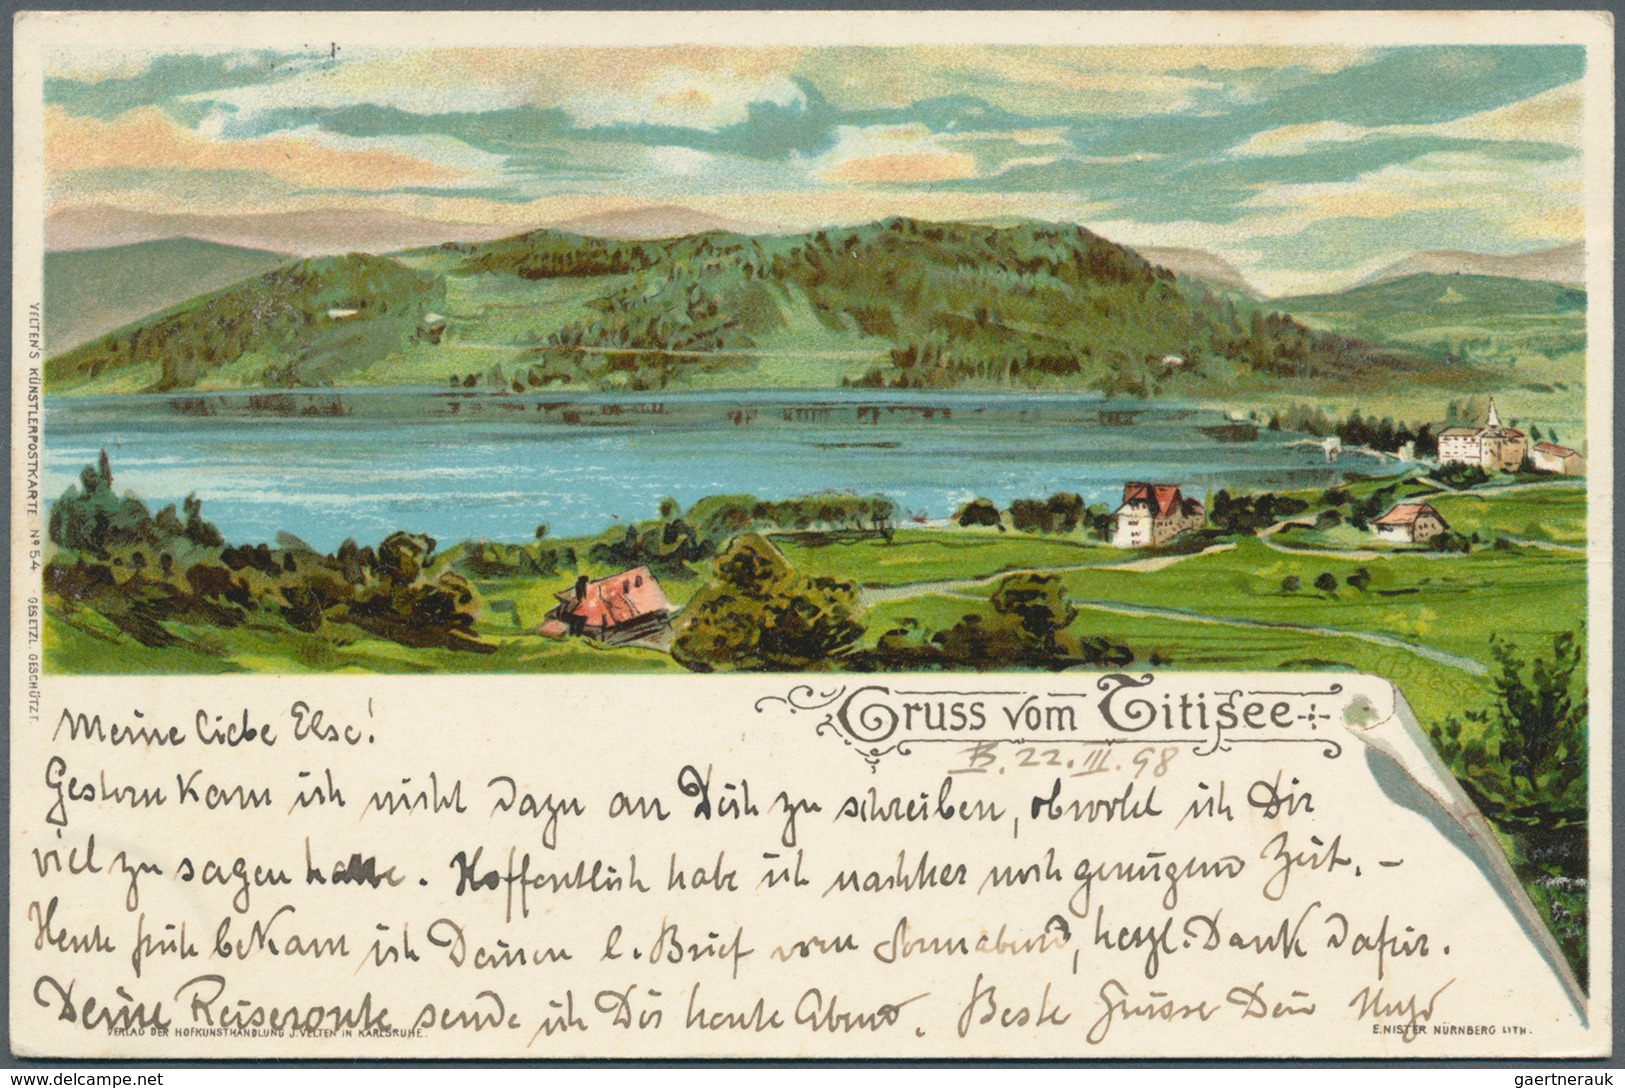 VELTEN'S KÜNSTLERPOSTKARTE Nº 54 - GESETZL. GESCHÜTZT.
Gruss vom Titisee
B. 22. III. 98
Meine liebe Else!
Gestern kam ich nicht dazu an Dich zu schreiben, obwohl ich Dir
viel zu sagen habe. Hoffentlich habe ich nachher noch genügend Zeit. –
Heute früh bekam ich Deinen l. Brief vom Sonnabend, herzl. Dank dafür.
Deine Reiseroute sende ich Dir heute Abend. Beste Grüsse Dein Hugo
VERLAG DER HOFKUNSTHANDLUNG J. VELTEN IN KARLSRUHE.
E. NISTER NÜRNBERG LITH.
delcampe.net
gaertnerauk